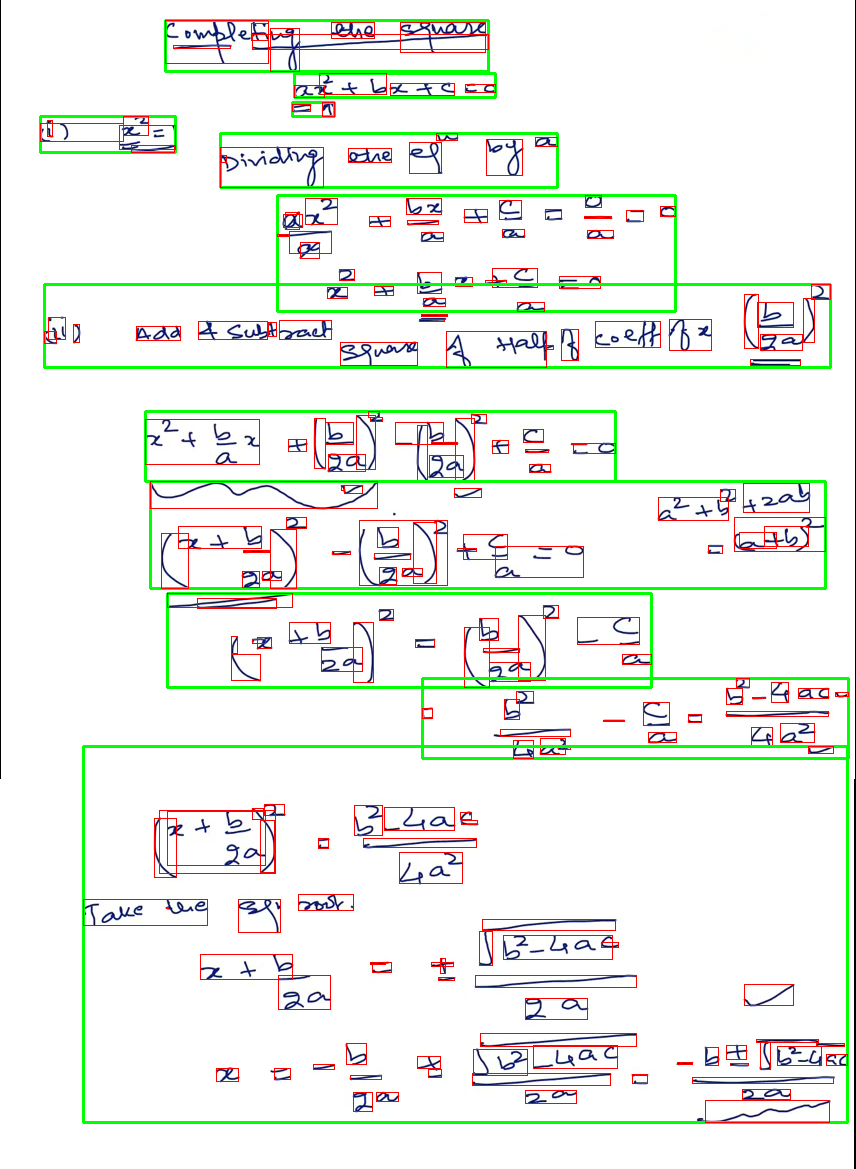 Completing the square
ax² + bx + c = 0
= 1
(i) x² =
Dividing the eqⁿ by a
ax²/a + bx/a + c/a = 0/a = 0
x² + b/a x + c/a = 0
(ii) Add & Subtract square of Half of coeff of x (b/2a)²
x² + b/a x + (b/2a)² - (b/2a)² + c/a = 0
a² + b² + 2ab
(x + b/2a)² - (b/2a)² + c/a = 0 = (a+b)²
(x + b/2a)² = (b/2a)² - c/a
= b²/4a² - c/a = b² - 4ac/4a²
(x + b/2a)² = b² - 4ac/4a²
Take the sq root.
x + b/2a = ± √b² - 4ac/2a
x = - b/2a ± √b² - 4ac/2a = - b ± √b² - 4ac/2a